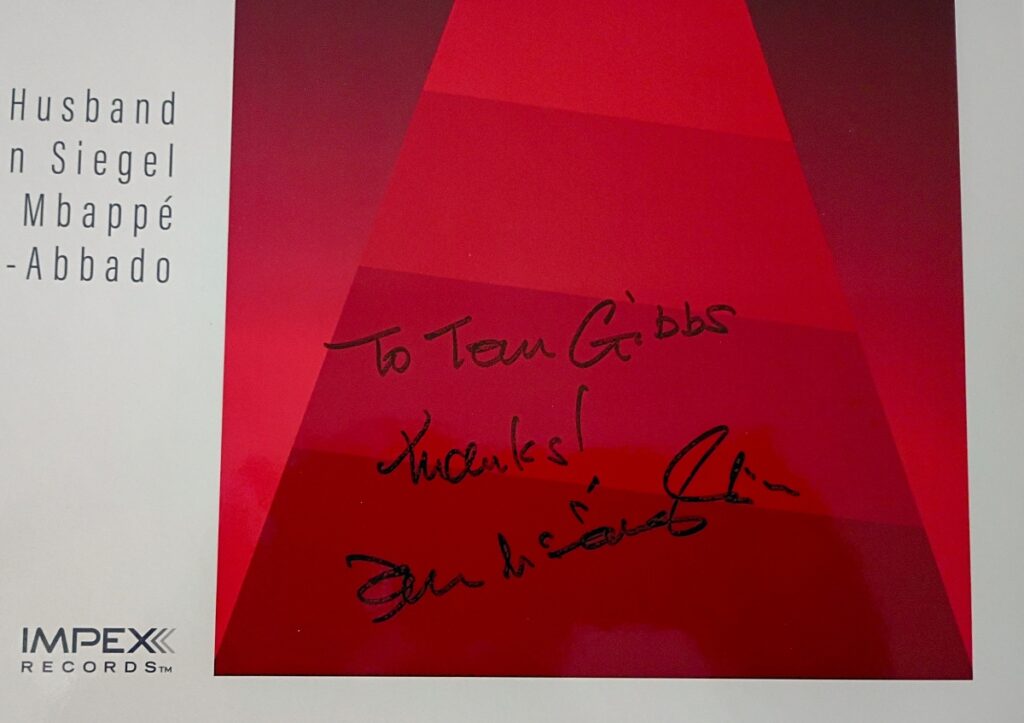 Husband
n Siegel
Mbappé
-Abbado
To Tom Gibbs
Thanks!
IMPEX
RECORDS™